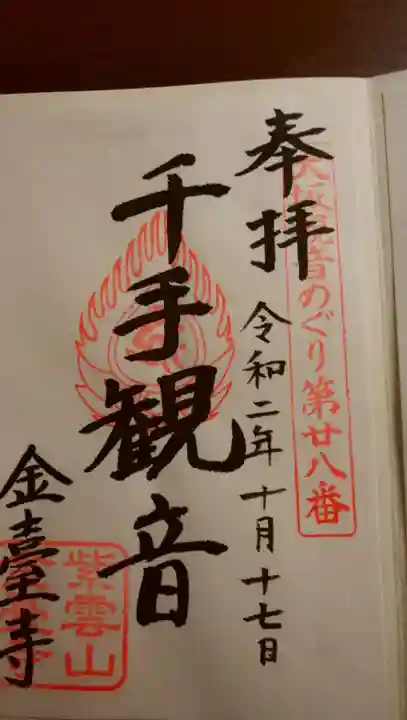 奉拝
大坂観音めぐり第廿八番
令和二年十月十七日
千手観音
紫雲山
金臺寺